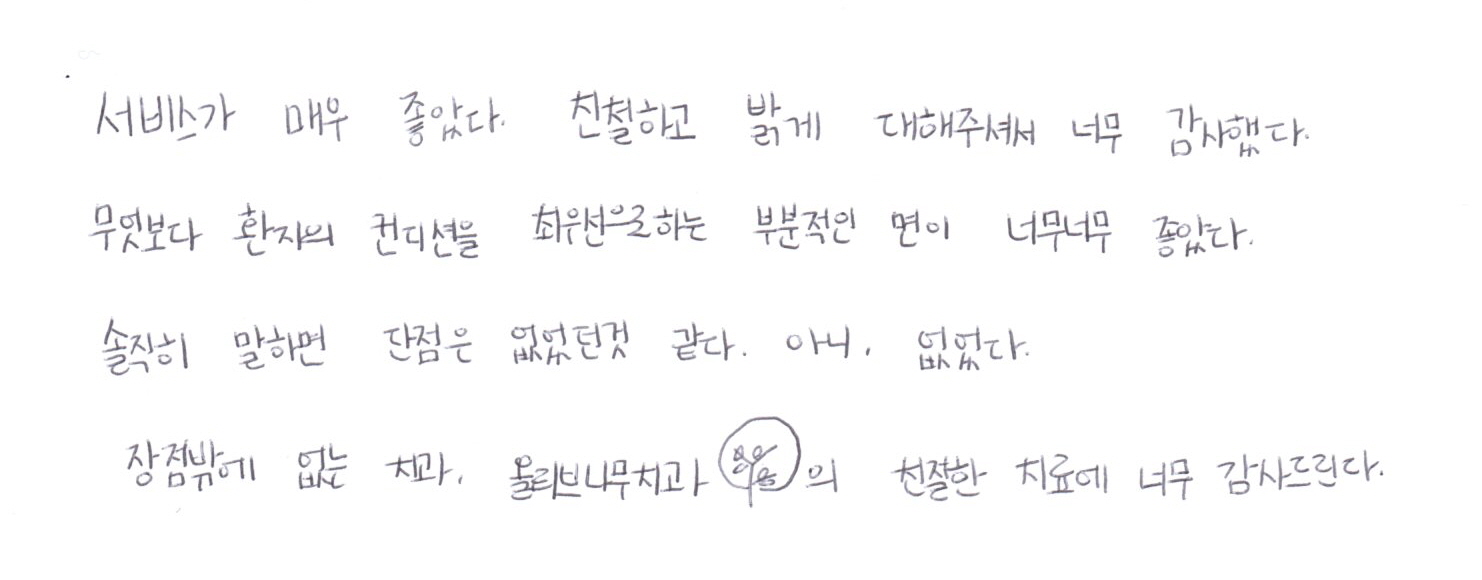 서비스가 매우 좋았다. 친철하고 밝게 대해주셔서 너무 감사했다.
무엇보다 환자의 컨디션을 최우선으로하는 부분적인 면이 너무너무 좋았다.
솔직히 말하면 단점은 없었던것 같다. 아니, 없었다.
장점밖에 없는 치과, 올리브나무치과의 친절한 치료에 너무 감사드린다.